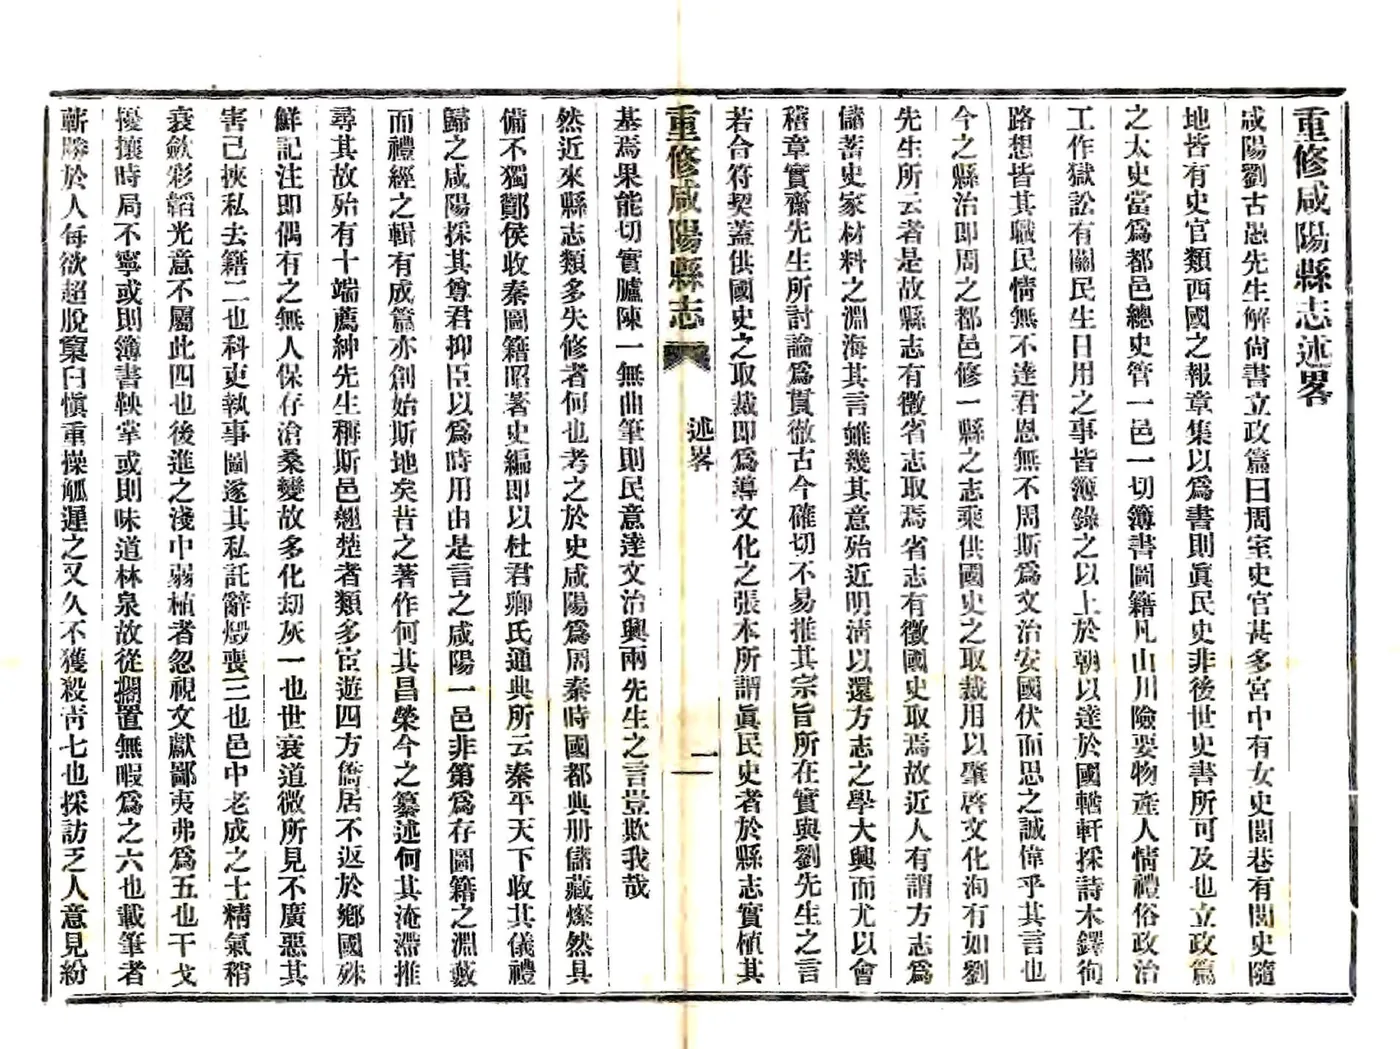 重修咸陽縣志述畧
咸陽劉古愚先生解尙書立政篇曰周室史官甚多宮中有女史閭巷有閭史隨
地皆有史官類西國之報章集以爲書則眞民史非後世史書所可及也立政篇
之太史當爲都邑總史管一邑一切簿書圖籍凡山川險要物產人情禮俗政治
工作獄訟有關民生日用之事皆簿錄之以上於朝以達於國輶軒採詩木鐸徇
路想皆其職民情無不達君恩無不周斯爲文治安國伏而思之誠偉乎其言也
今之縣治即周之都邑修一縣之志乘供國史之取裁用以肇啓文化洵有如劉
先生所云者是故縣志有徵省志取焉省志有徵國史取焉故近人有謂方志爲
儲蓄史家材料之淵海其言雖幾其意殆近明淸以還方志之學大興而尤以會
稽章實齋先生所討論爲貫徹古今確切不易推其宗旨所在實與劉先生之言
若合符契蓋供國史之取裁即爲導文化之張本所謂眞民史者於縣志實植其
重修咸陽縣志
述畧
一
基焉果能切實臚陳一無曲筆則民意達文治興兩先生之言豈欺我哉
然近來縣志類多失修者何也考之於史咸陽爲周秦時國都典册儲藏燦然具
備不獨酇侯收秦圖籍昭著史編即以杜君卿氏通典所云秦平天下收其儀禮
歸之咸陽採其尊君抑臣以爲時用由是言之咸陽一邑非第爲存圖籍之淵藪
而禮經之輯有成篇亦創始斯地矣昔之著作何其昌榮今之纂述何其淹滯推
尋其故殆有十端薦紳先生稱斯邑翹楚者類多宦遊四方僑居不返於鄉國殊
鮮記注即偶有之無人保存滄桑變故多化劫灰一也世衰道微所見不廣惡其
害己挾私去籍二也科吏執事圖遂其私託辭燬喪三也邑中老成之士精氣稍
衰歛彩韜光意不屬此四也後進之淺中弱植者忽視文獻鄙夷弗爲五也干戈
擾攘時局不寧或則簿書鞅掌或則味道林泉故從擱置無暇爲之六也載筆者
蘄勝於人每欲超脫窠臼愼重操觚遲之又久不獲殺靑七也採訪乏人意見紛